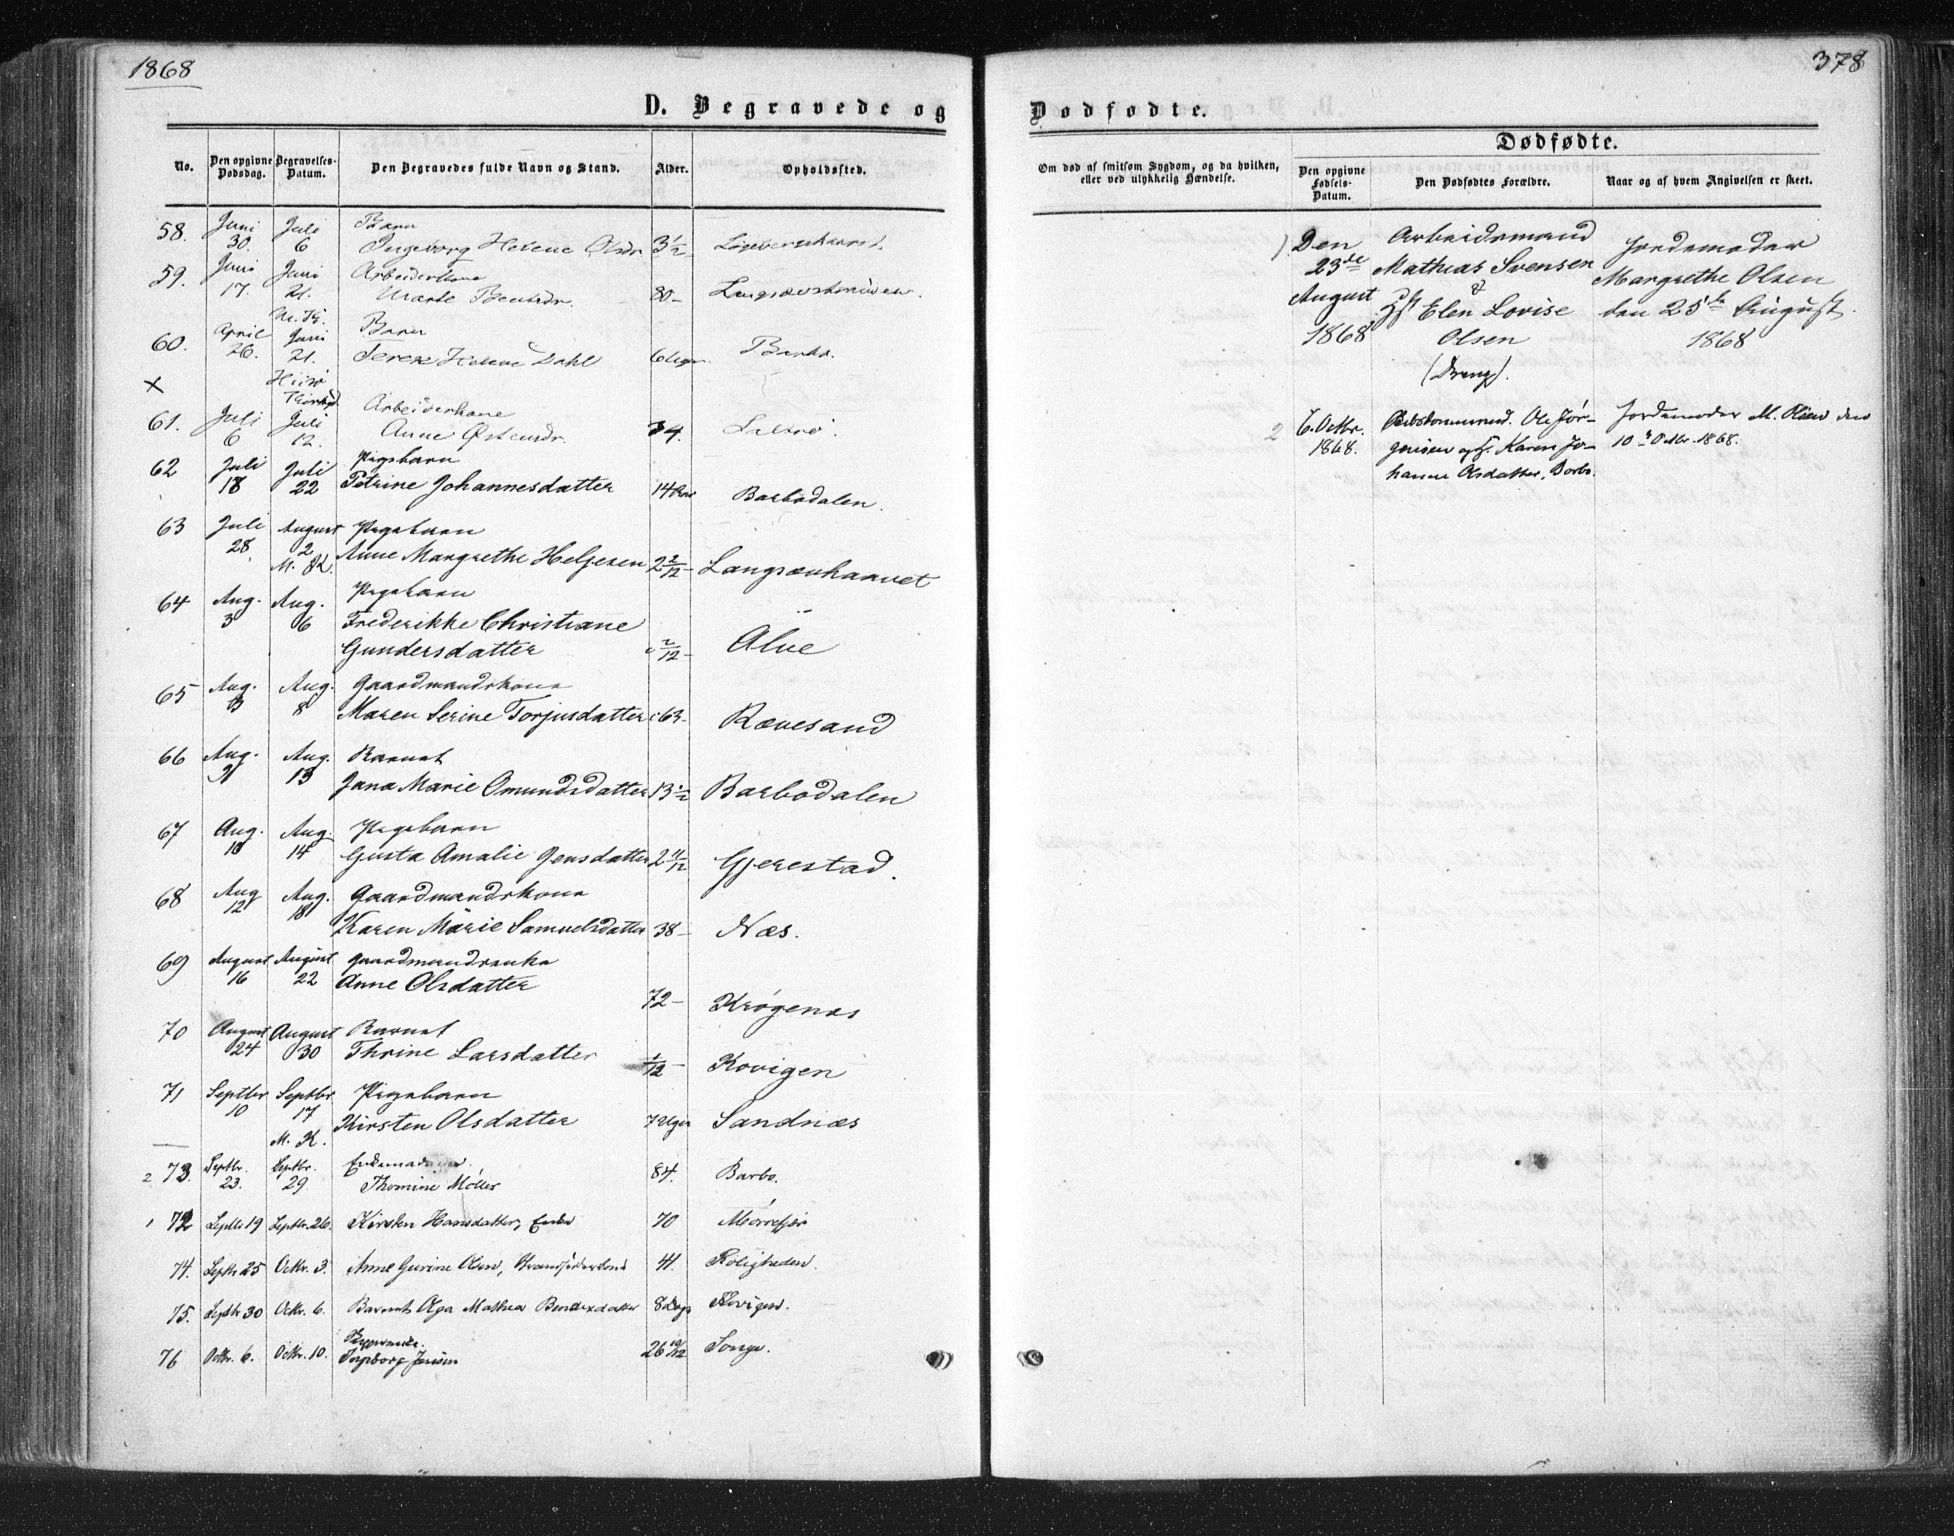 1868
378
D. Begravede og
Dødfødte.
Dødfødte.
No.
Den opgivne Dødsdag.
Begravelses-Datum.
Den Begravedes fulde Navn og Stand.
Alder.
Opholdssted.
Om død af smitsom Sygdom, og da hvilken,
eller ved ulykkelig Hændelse.
Den opgivne Fødsels-Datum.
Den Dødfødtes Forældre.
Naar og af hvem Angivelsen er skeet.
58. Juni 30. Juli 6 Barn
Ingeborg Helene Olsdr 3½
59. Juni 17. Juni 21. Arbeiderkone
Marte Bentsdr. 80-
60. April 26. Juni 21. Barn
Helene Dahl 6 Uger. Barbo.
X
61. Juli 6 Juli 12. Arbeiderkone
Anne Østensdr.
62 Juli 18 Juli 22 Pigebarn
Petrine Johannesdatter 14 Barbodalen.
63 Juli 28 August 2 Pigebarn
Anne Margrethe Helgesen 2 2/12 Langsævhaavet
64 Aug. 3 Aug. 6 Pigebarn
Frederikke Christiane
Gundersdatter 2/12 - Alve
65 Aug. 3 Aug. 8 Gaardmandskone
Maren Serine Torjusdatter 63- Rævesand
66 Aug. 9 Aug. 13 Barnet
Jana Marie Omundsdatter 13 ½ Barbodalen
67 Aug. 10 Aug. 14 Pigebarn
Gusta Amalie Jensdatter 2 11/12 Gjerestad.
68 Aug 12 Aug. 18 Gaardmandskone
Karen Marie Samuelsdatter 38- Næs.
69 August 16 August 22 Gaardmandsenke
Anne Olsdatter 72- Krøgenæs
70 August 24 August 30 Barnet
Thrine Larsdatter 1/12 - Kovigen
71 Septbr 10 Septbr 17 M. K. Pigebarn
Kirsten Olsdatter 7 Uger Sandnæs
2 73. Septbr. 23. Septbr. 29. Enkemadame
Thomine Møller 84. Barbo.
1 72 Septbr 19 Septbr. 26. Kirsten Hansdatter, Enke 70 Mørrefjær
74. Septbr 25 Octbr. 3. Anne Gurine Olsen, 41. Roligheden.
75. Septbr 30 Octbr. 6. Barnet Olga Mathea Bendixdatter 8 Dage Kovigen.
76 Octbr. 6. Octbr. 10. Jensen 26 10/12 Songe.
1) Den
23de
August
1868
Arbeidsmand
Mathias Svensen
&
Elen Lovise
Olsen
(Dreng).
Jordemoder
Margrethe Olsen
den 25de August.
1868
2 6. Octbr.
1868.
Ole Jør-
gensen og H. Karen Jo-
hanne Olsdatter, Barbo.
Jordemoder M. Olsen den
10de Octbr. 1868.